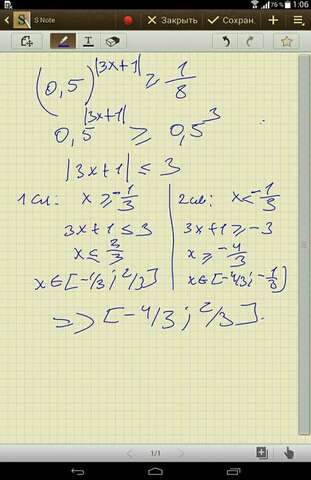 76 % 1:06
S Note
Закрыть
Сохран.
T
(0,5)^|3x+1| ≥ 1/8
0,5^|3x+1| ≥ 0,5^3
|3x+1| ≤ 3
1 сл: x ≥ -1/3
3x+1 ≤ 3
x ≤ 2/3
x ∈ [-1/3; 2/3]
2 сл: x < -1/3
3x+1 ≥ -3
x ≥ -4/3
x ∈ [-4/3; -1/3)
=> [-4/3; 2/3].
1/1